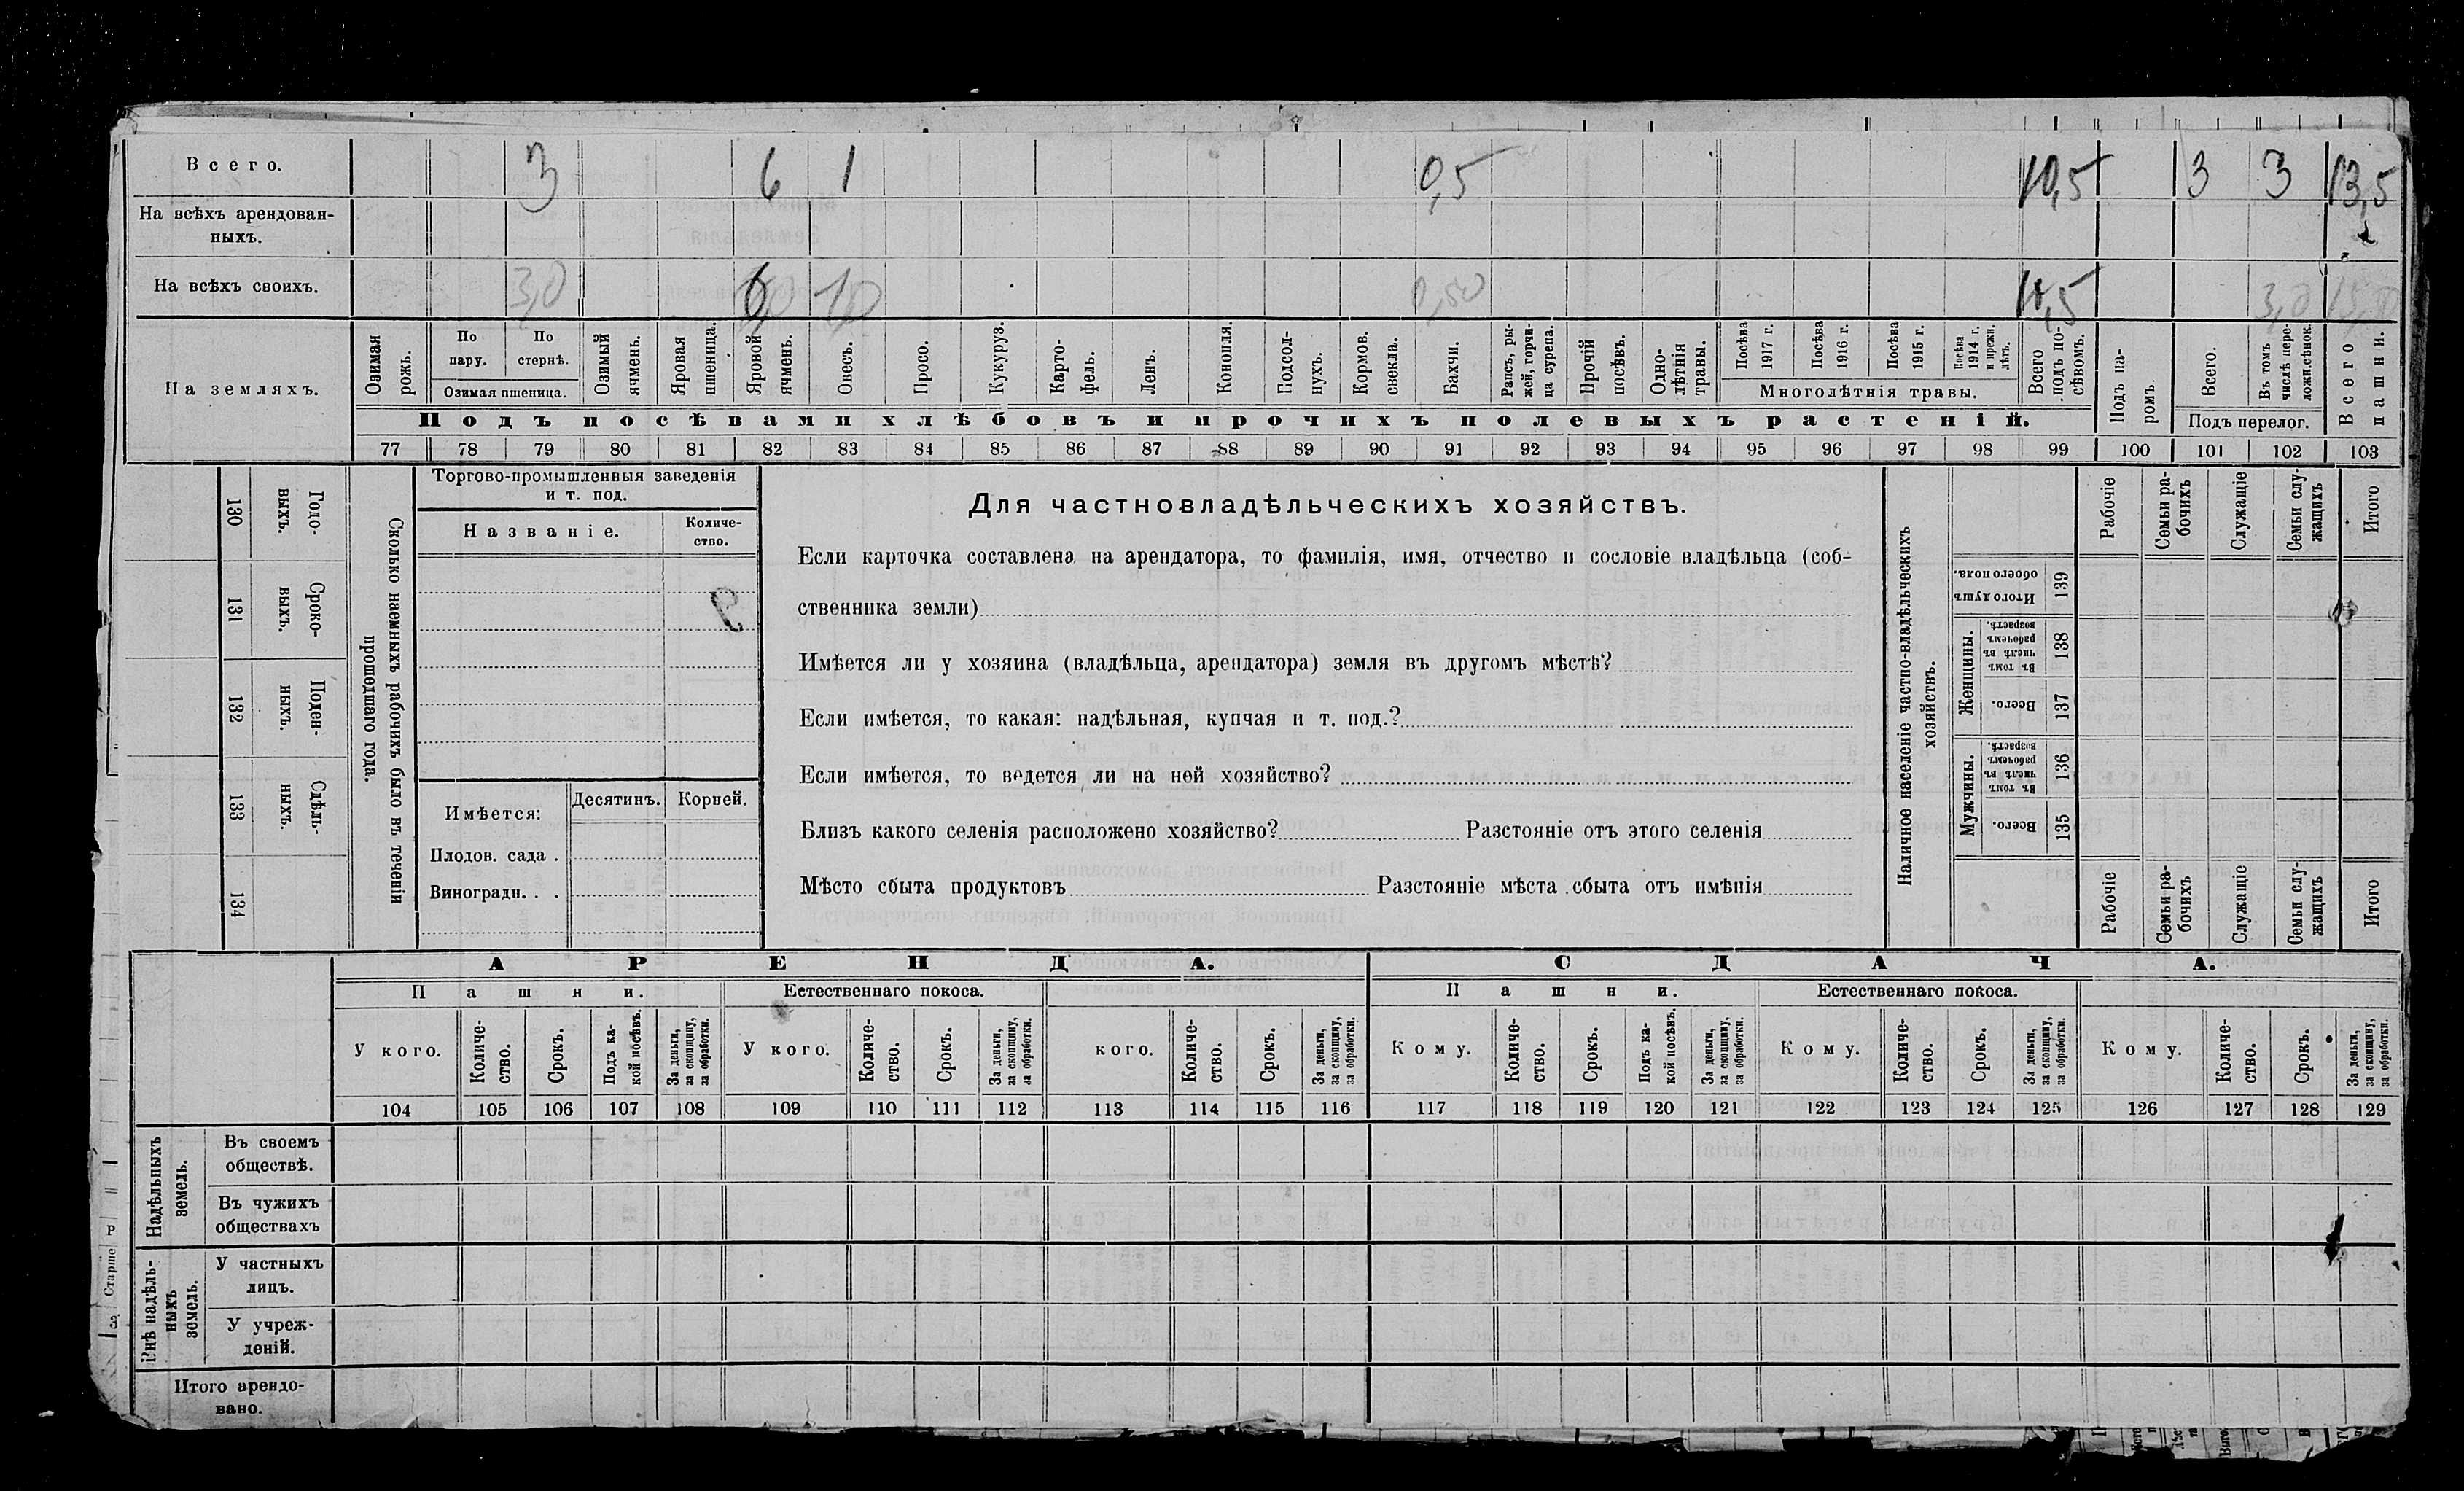 Всего. 3 6 1 0,5 10,5 3 3 13,5
На всѣхъ арендован-
ныхъ.
На всѣхъ своихъ. 3,0 6 1,0 0,50 10,5 3,0
На земляхъ.
Озимая рожь.
По пару.
По стернѣ.
Озимая пшеница.
Озимый ячмень.
Яровая пшеница.
Яровой ячмень.
Овесъ.
Просо.
Кукуруз.
Карто-
фель.
Ленъ.
Конопля.
Подсол-
нухъ.
Кормов. свекла.
Бахчи.
Рапсъ, ры-
жей, горчи-
ца сурепа.
Прочій посѣвъ.
Одно-
лѣтнія травы.
Посѣва 1917 г.
Посѣва 1916 г.
Посѣва 1915 г.
Посѣва 1914 г. и прежн. лѣтъ.
Многолѣтнія травы.
Всего подъ по-
сѣвомъ.
Подъ па-
ромъ.
Всего.
Въ томъ числѣ пере-
ложн. сѣнок.
Подъ перелог.
Всего пашни.
Подъ посѣвами хлѣбовъ и прочихъ полевыхъ растеній.
77 78 79 80 81 82 83 84 85 86 87 88 89 90 91 92 93 94 95 96 97 98 99 100 101 102 103
130 Годо-
выхъ.
131 Сроко-
ныхъ.
132 Поден-
ныхъ.
133 Сдѣль-
ныхъ.
134
Сколько наемныхъ рабочихъ было въ теченіи
прошедшаго года.
Торгово-промышленныя заведенія
и т. под.
Названіе.
Количе-
ство.
Имѣется: Десятинъ. Корней.
Плодов. сада .
Виноградн. . .
Для частновладѣльческихъ хозяйствъ.
Если карточка составлена на арендатора, то фамилія, имя, отчество и сословіе владѣльца (соб-
ственника земли)
Имѣется ли у хозяина (владѣльца, арендатора) земля въ другомъ мѣстѣ?
Если имѣется, то какая: надѣльная, купчая и т. под.?
Если имѣется, то ведется ли на ней хозяйство?
Близъ какого селенія расположено хозяйство? Разстояніе отъ этого селенія
Мѣсто сбыта продуктовъ Разстояніе мѣста сбыта отъ имѣнія
Наличное населеніе частно-владѣльческихъ
хозяйствъ.
Рабочіе
Семьи ра-
бочихъ
Служащіе
Семьи слу-
жащихъ
Итого
Итого душъ обоего пола. 139
Женщины.
Въ томъ числѣ въ рабочемъ возрастѣ. 138
Всего. 137
Мужчины.
Въ томъ числѣ въ рабочемъ возрастѣ. 136
Всего. 135
Рабочіе
Семьи ра-
бочихъ
Служащіе
Семьи слу-
жащихъ
Итого
АРЕНДА. СДАЧА.
Пашни. Естественнаго покоса. Пашни. Естественнаго покоса.
У кого.
Количе-
ство.
Срокъ.
Подъ ка-
кой посѣвъ.
За деньги, за скопщину, за обработки.
У кого.
Количе-
ство.
Срокъ.
За деньги, за скопщину, за обработки.
кого.
Количе-
ство.
Срокъ.
За деньги, за скопщину, за обработки.
Кому.
Количе-
ство.
Срокъ.
Подъ ка-
кой посѣвъ.
За деньги, за скопщину, за обработки.
Кому.
Количе-
ство.
Срокъ.
За деньги, за скопщину, за обработки.
Кому.
Количе-
ство.
Срокъ.
За деньги, за скопщину, за обработки.
104 105 106 107 108 109 110 111 112 113 114 115 116 117 118 119 120 121 122 123 124 125 126 127 128 129
Надѣльныхъ
земель.
Въ своемъ
обществѣ.
Въ чужихъ
обществахъ
Внѣ надѣль-
ныхъ
земель.
У частныхъ
лицъ.
У учреж-
деній.
Итого арендо-
вано.
Старше